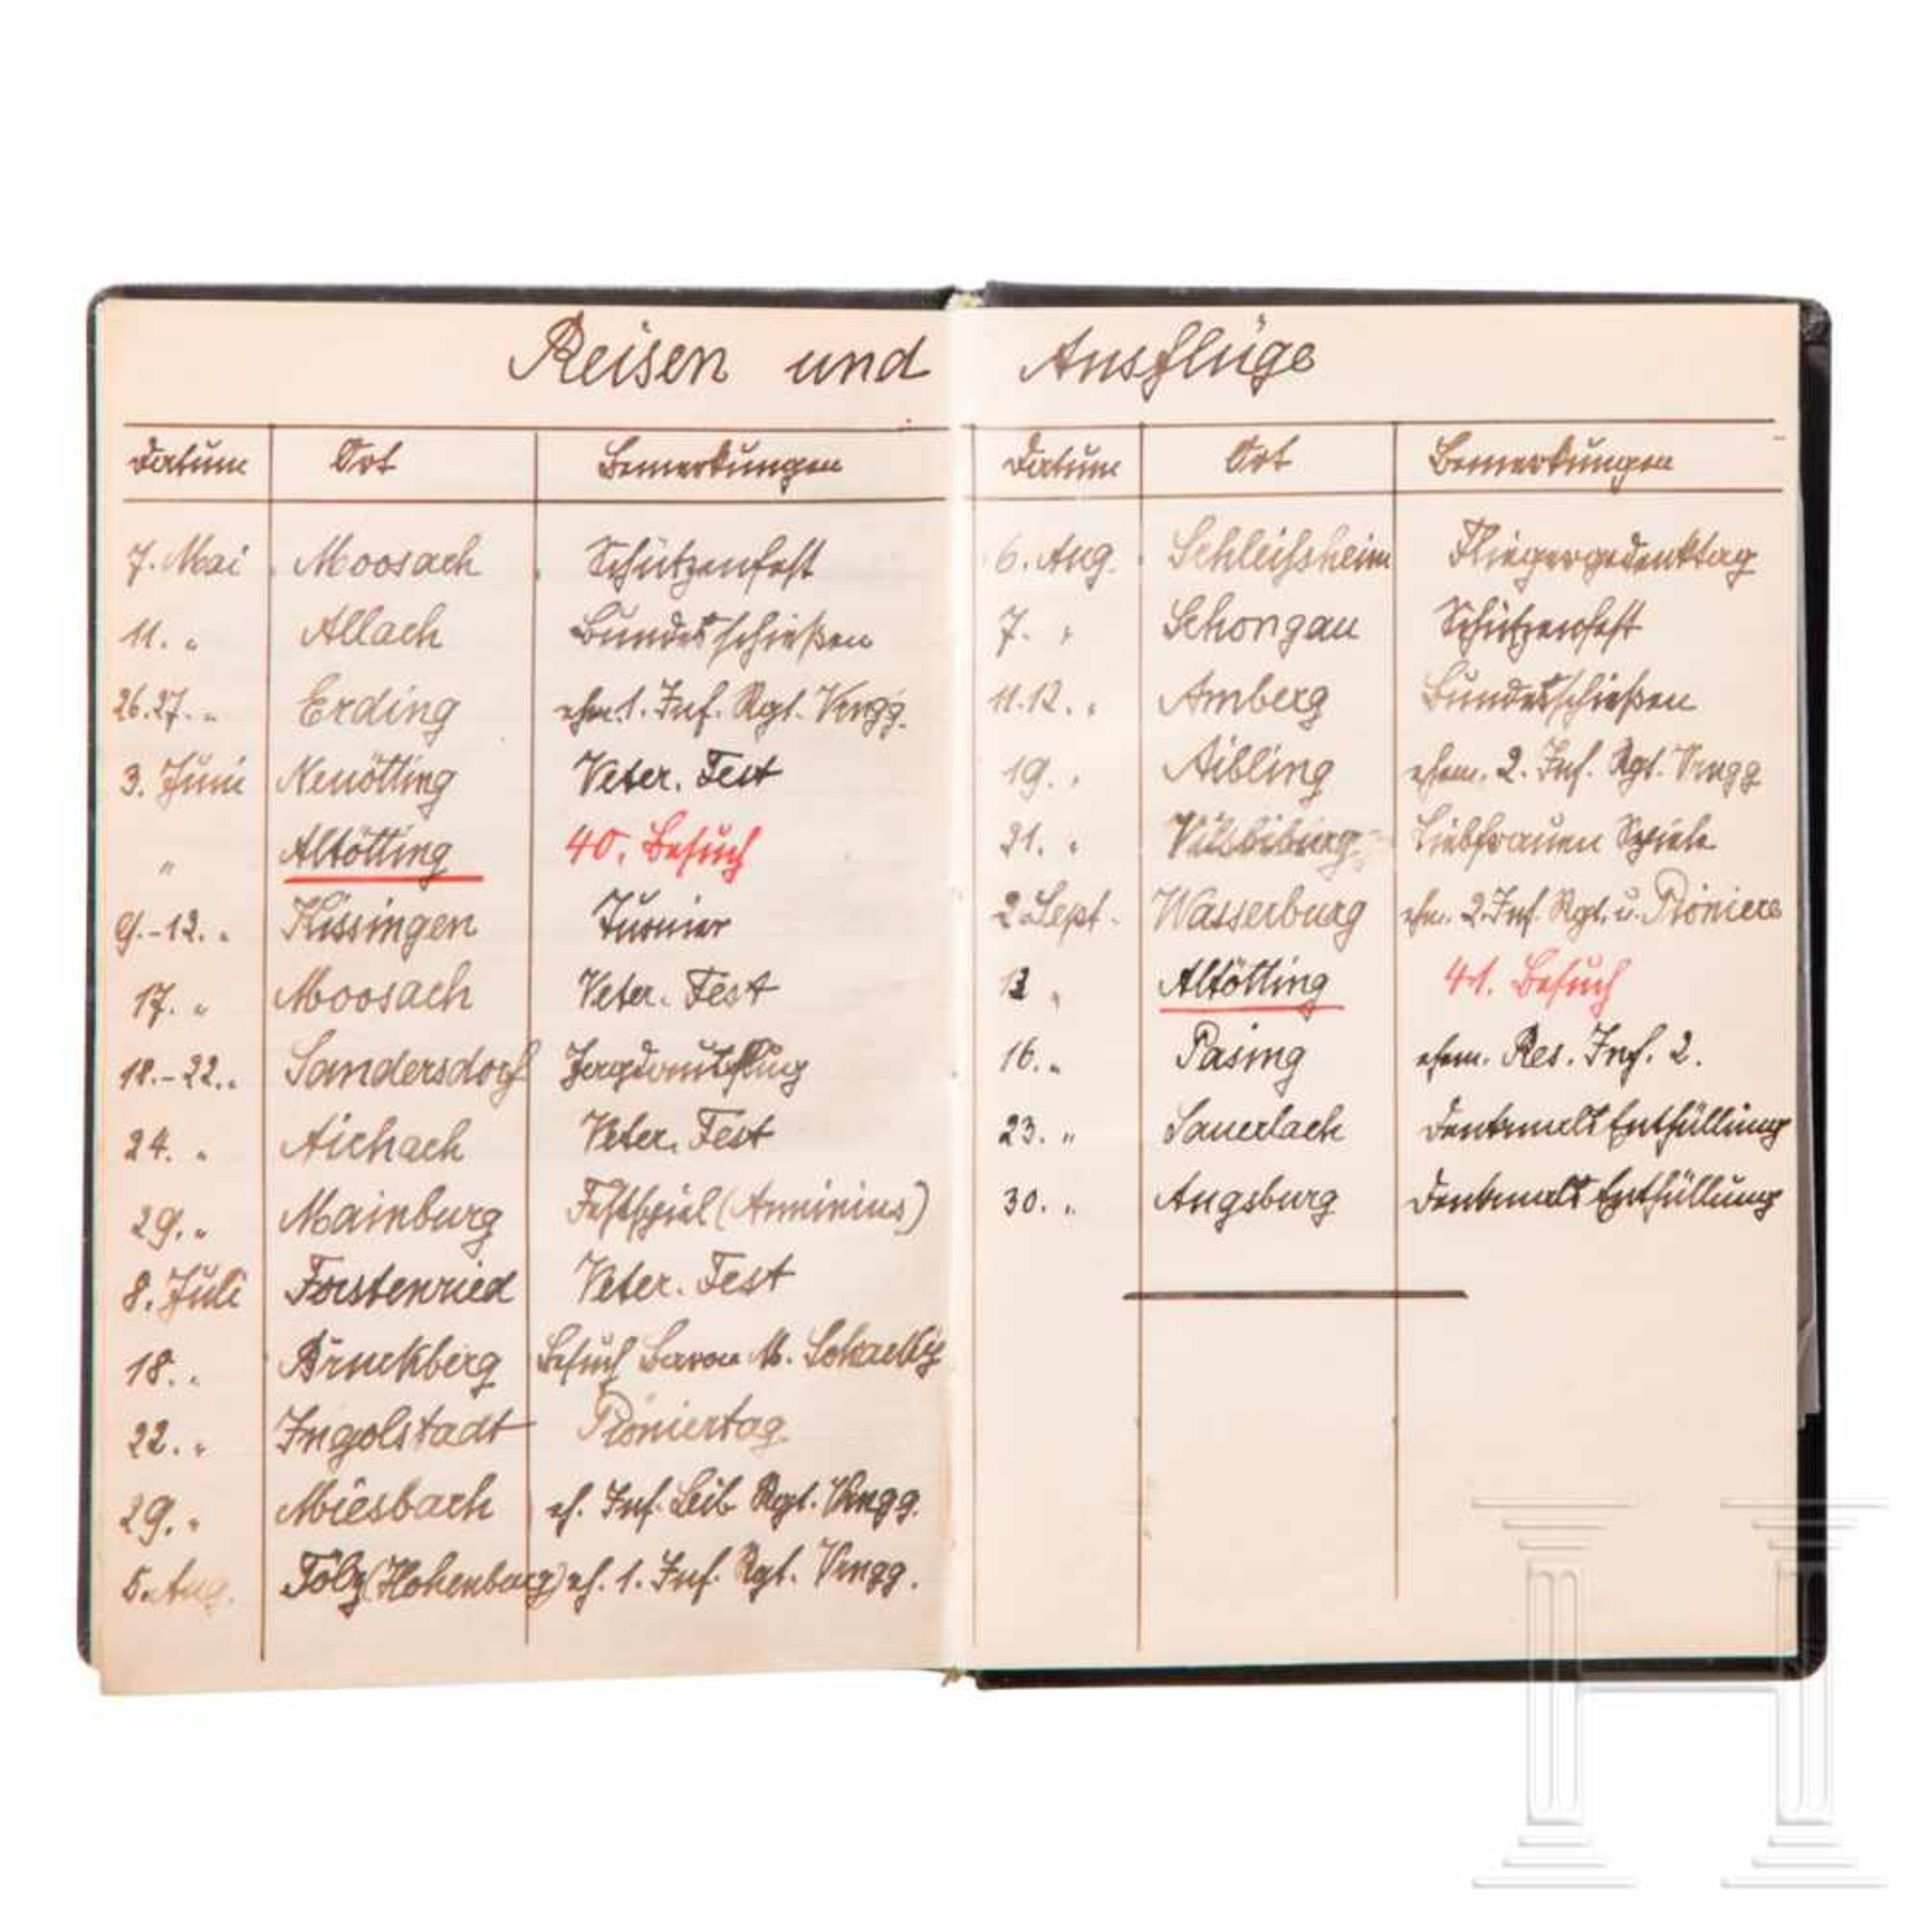 Reisen und Ausflüge
Datum Ort Bemerkungen
7. Mai Moosach Schützenfest
11. " Allach Bundesschießen
26.27. " Erding ehm. 1. Inf. Rgt. Vrngg.
3. Juni Neuötting Veter. Fest
" Altötting 40. Besuch
9.-12. " Kissingen Turnier
17. " Moosach Veter. Fest
18.-22. " Sandersdorf
24. " Aichach Veter. Fest
29. " Mainburg Festspiel (Arminius)
8. Juli Forstenried Veter. Fest
18. " Bruckberg Besuch Baron M.
22. " Ingolstadt Pioniertag
29. " Miesbach eh. Inf. Leib Rgt. Vrngg.
5. Aug. Tölz (Hohenburg) eh. 1. Inf. Rgt. Vrngg.
Datum Ort Bemerkungen
6. Aug. Schleißheim Fliegergedenktag
7. " Schongau Schützenfest
11.12. " Amberg Bundesschießen
19. " Aibling ehem. 2. Inf. Rgt. Vrngg
21. " Vilsbiburg Liebfrauen Spiele
2. Sept. Wasserburg ehm. 2. Inf. Rgt. u. Pioniere
" Altötting 41. Besuch
16. " Pasing ehem. Res. Inf. 2.
23. " Sauerlach Denkmals Enthüllung
30. " Augsburg Denkmals Enthüllung